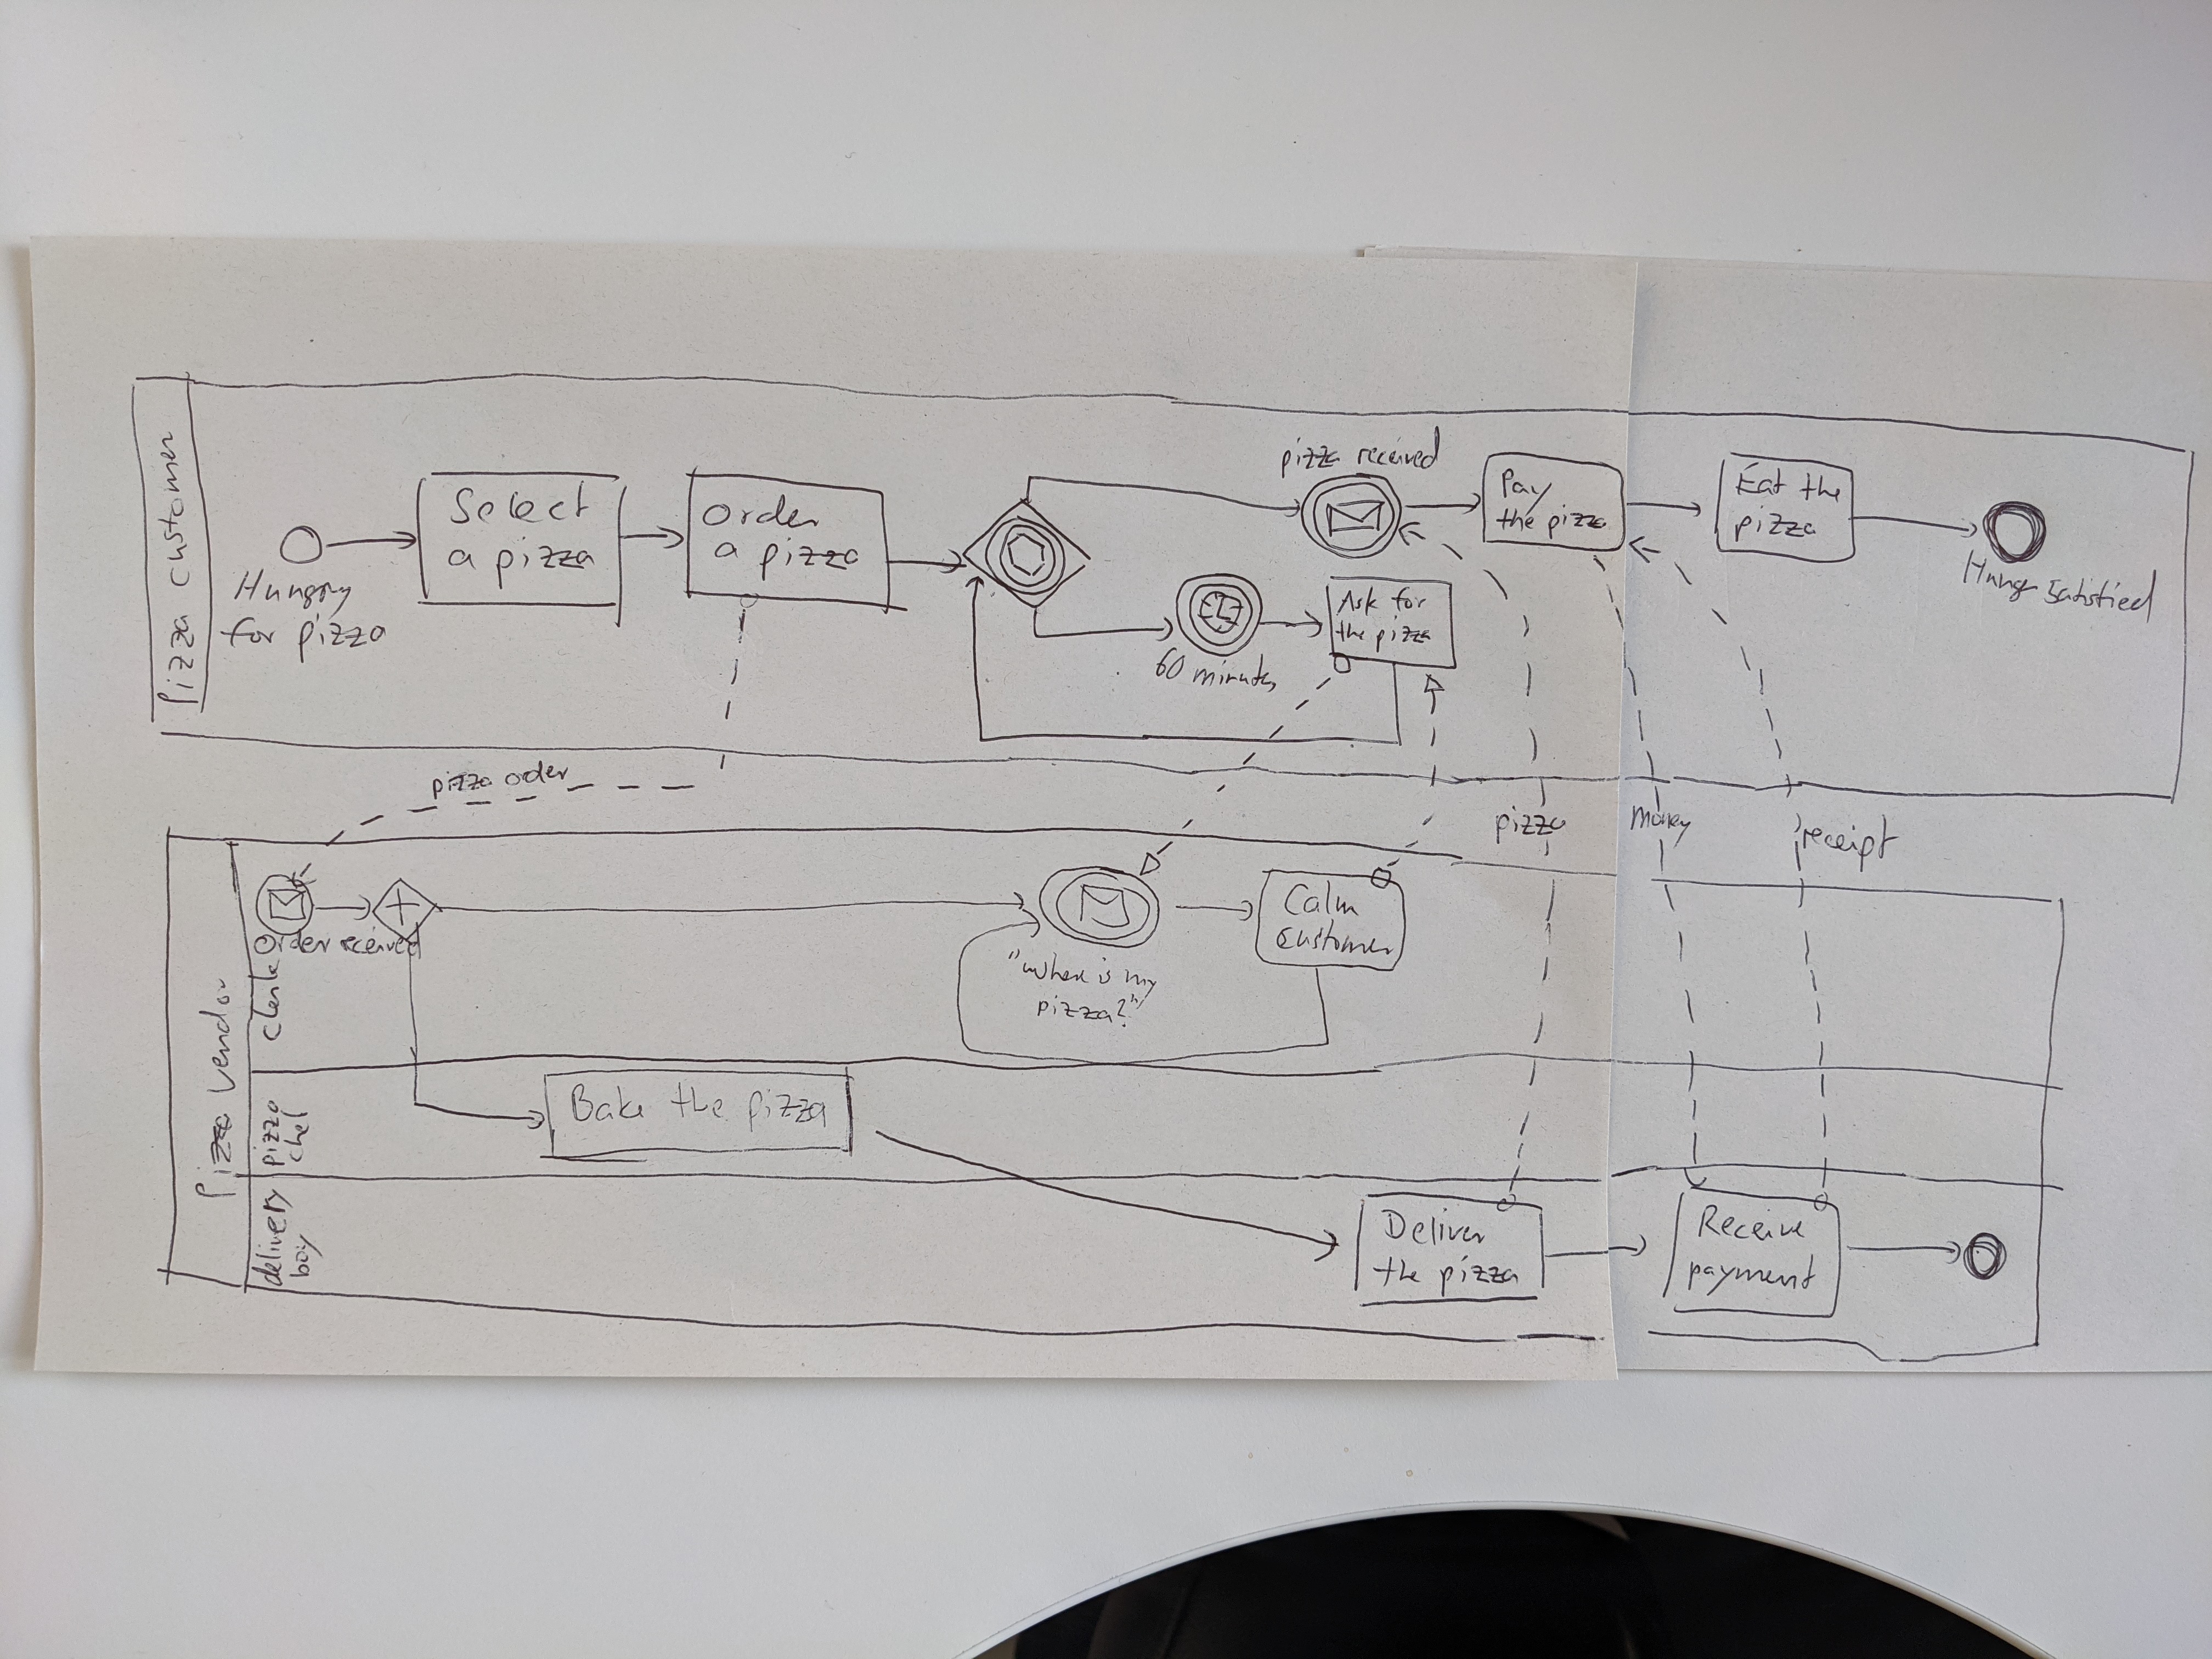 Pizza customer
Hungry
for pizza
Select
a pizza
Order
a pizza
pizza received
60 minutes
Ask for
the pizza
Pay
the pizza
Eat the
pizza
Hunger satisfied
pizza order
pizza
money
receipt
Pizza vendor
clerk
Order received
"Where is my
pizza?"
Calm
customer
pizza
chef
Bake the pizza
delivery
boy
Deliver
the pizza
Receive
payment